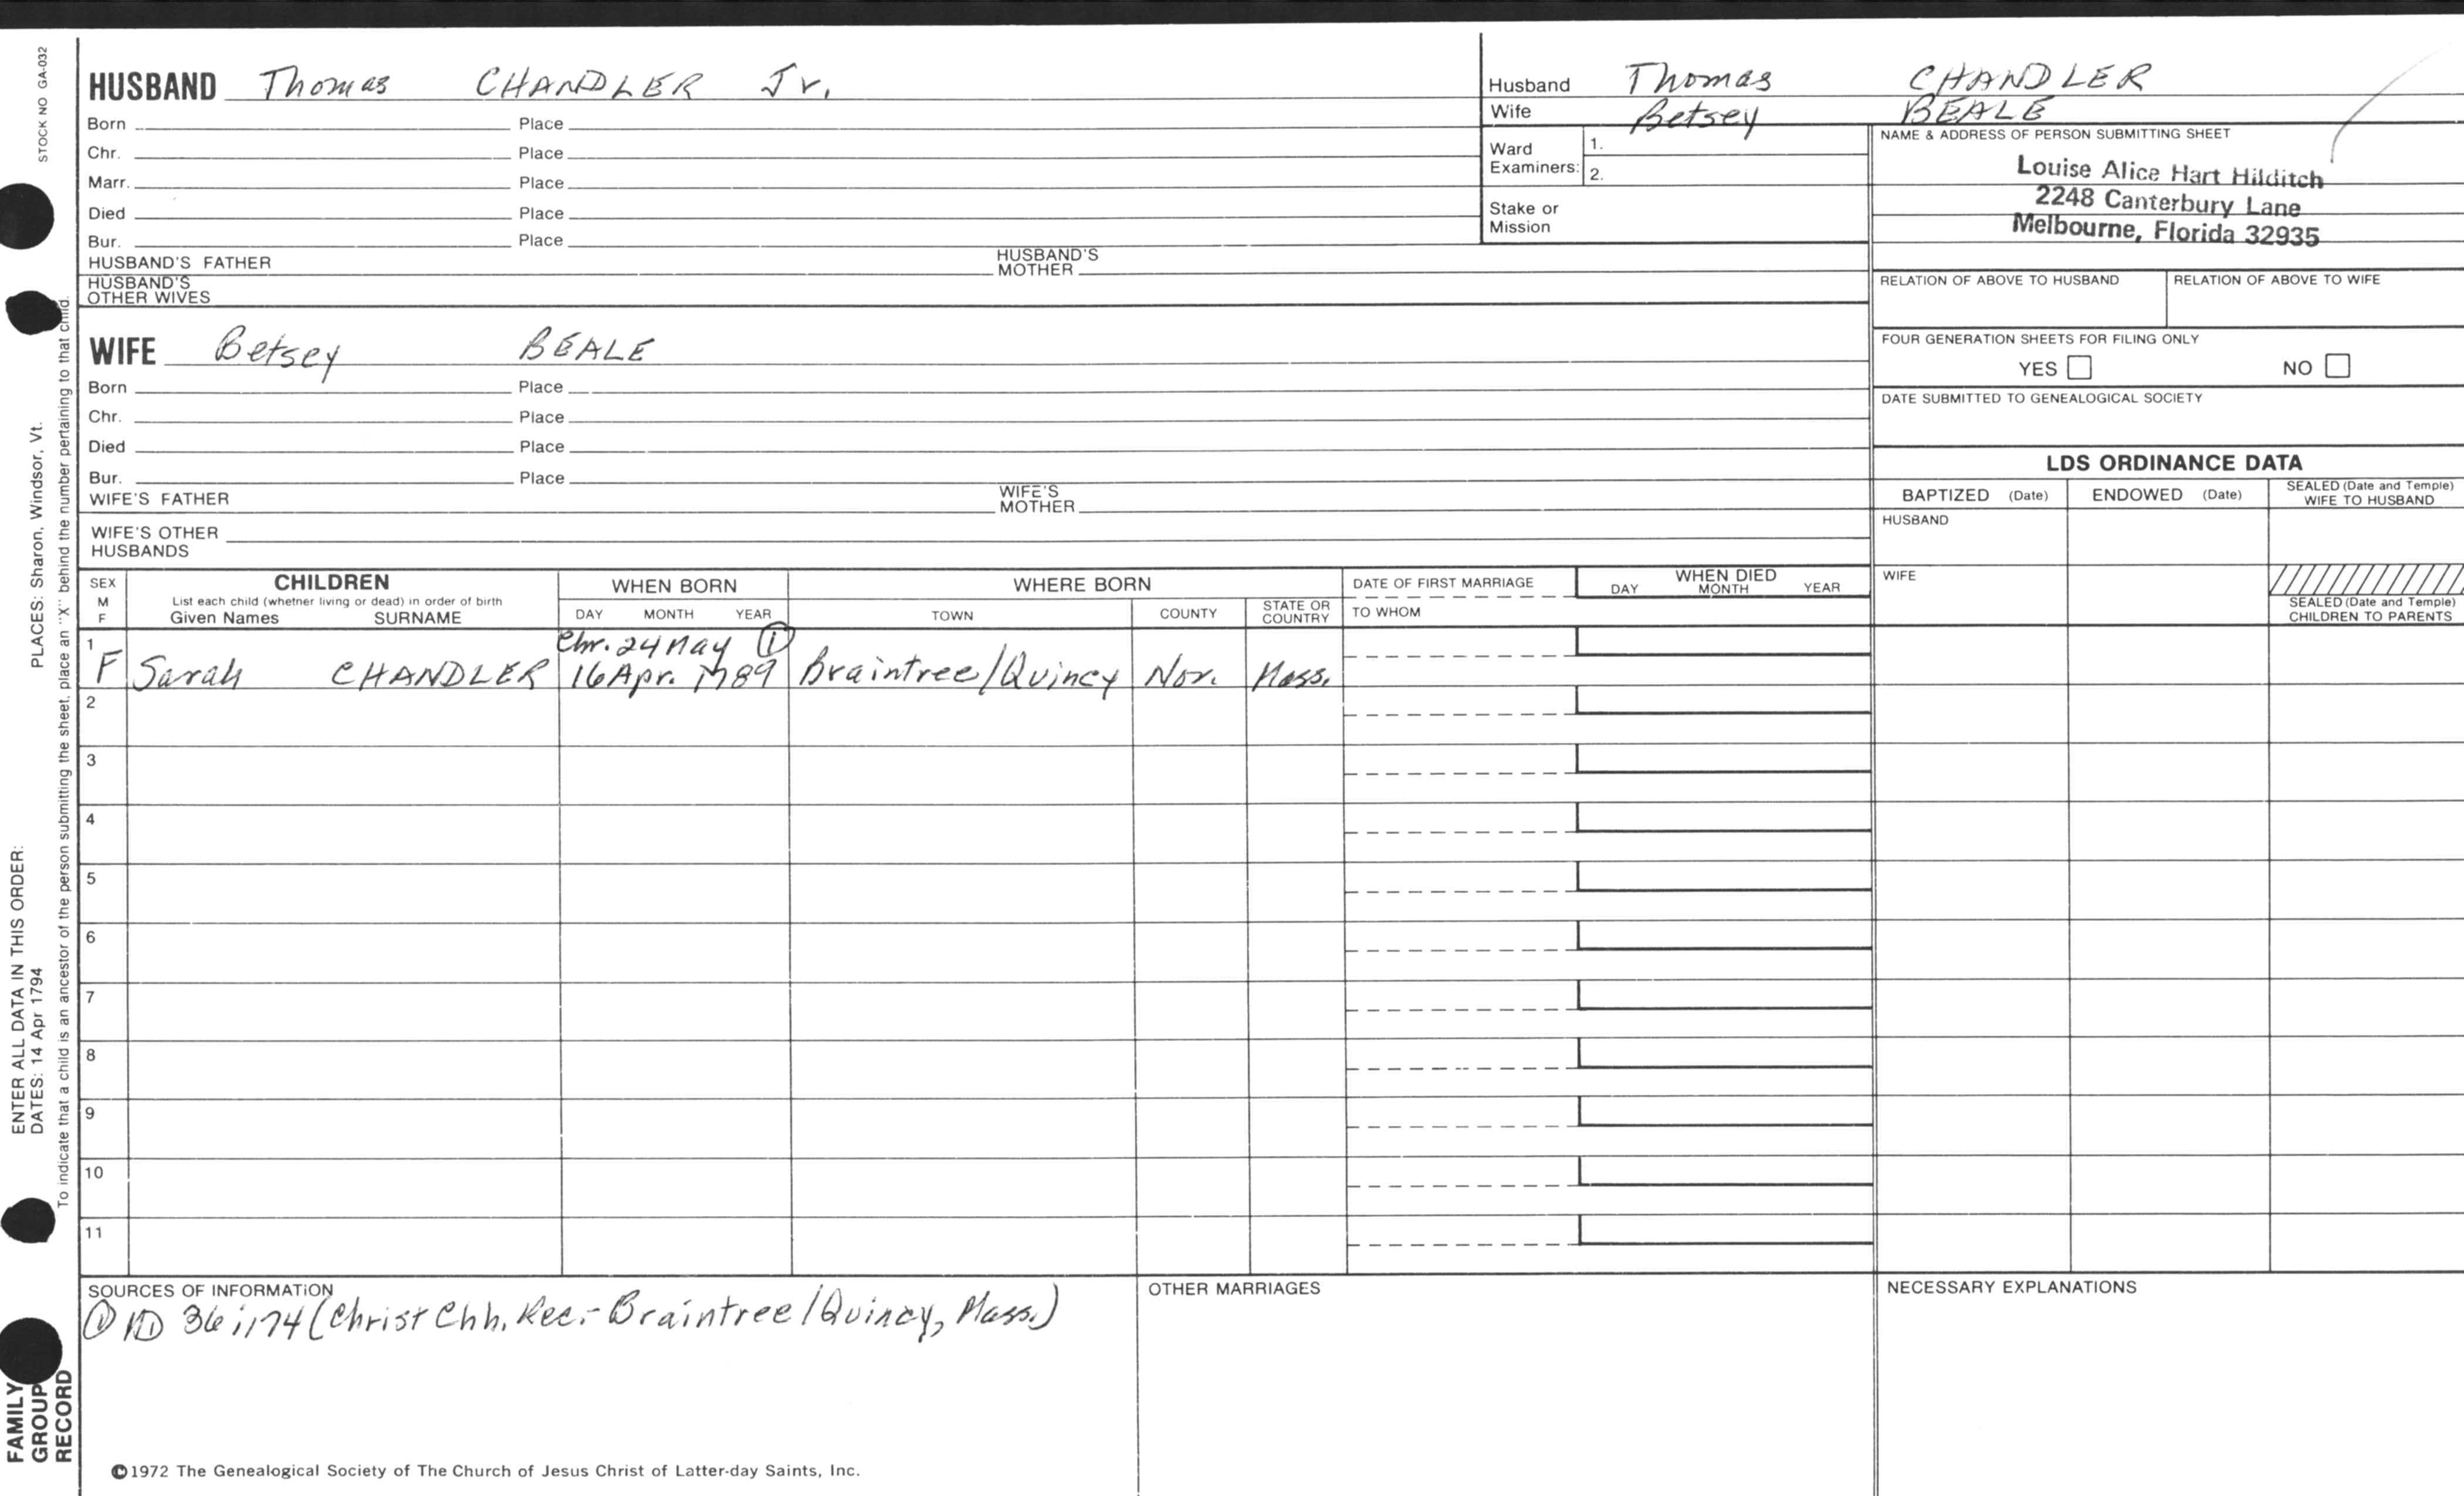 STOCK NO GA-032
PLACES: Sharon, Windsor, Vt.
ENTER ALL DATA IN THIS ORDER:
DATES: 14 Apr 1794
To indicate that a child is an ancestor of the person submitting the sheet, place an "X" behind the number pertaining to that child.
FAMILY
GROUP
RECORD
HUSBAND Thomas CHANDLER Jr.
Born Place
Chr. Place
Marr. Place
Died Place
Bur. Place
HUSBAND'S FATHER HUSBAND'S MOTHER
HUSBAND'S
OTHER WIVES
WIFE Betsey BEALE
Born Place
Chr. Place
Died Place
Bur. Place
WIFE'S FATHER WIFE'S MOTHER
WIFE'S OTHER
HUSBANDS
Husband Thomas CHANDLER
Wife Betsey BEALE
Ward
Examiners:
1.
2.
Stake or
Mission
NAME & ADDRESS OF PERSON SUBMITTING SHEET
Louise Alice Hart Hilditch
2248 Canterbury Lane
Melbourne, Florida 32935
RELATION OF ABOVE TO HUSBAND RELATION OF ABOVE TO WIFE
FOUR GENERATION SHEETS FOR FILING ONLY
YES NO
DATE SUBMITTED TO GENEALOGICAL SOCIETY
LDS ORDINANCE DATA
BAPTIZED (Date) ENDOWED (Date) SEALED (Date and Temple)
WIFE TO HUSBAND
HUSBAND
WIFE
SEALED (Date and Temple)
CHILDREN TO PARENTS
SEX
M
F
CHILDREN
List each child (whether living or dead) in order of birth
Given Names SURNAME
WHEN BORN
DAY MONTH YEAR
WHERE BORN
TOWN COUNTY STATE OR COUNTRY
DATE OF FIRST MARRIAGE
TO WHOM
WHEN DIED
DAY MONTH YEAR
Chr. 24 May ①
1 F Sarah CHANDLER 16 Apr. 1789 Braintree/Quincy Nor. Mass.
2
3
4
5
6
7
8
9
10
11
SOURCES OF INFORMATION
① ND 36;174 (Christ Chh. Rec.- Braintree/Quincy, Mass.)
OTHER MARRIAGES
NECESSARY EXPLANATIONS
©1972 The Genealogical Society of The Church of Jesus Christ of Latter-day Saints, Inc.